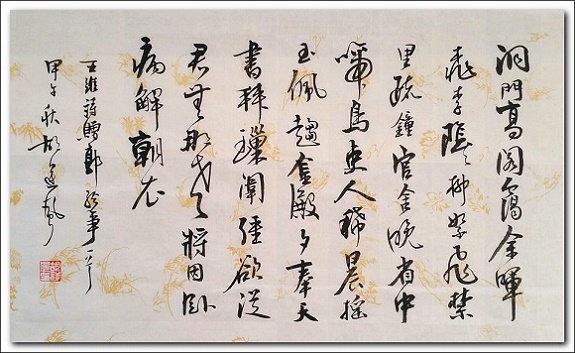 洞門高阁靄余暉
桃李陰々柳絮飛禁
里疏鐘官舍晚省中
啼鳥吏人稀晨摇
玉佩趨金殿夕奉天
書拜瑣闈强欲從
君無那老将因卧
病解朝衣
王維詩贈郭给事一首
甲午秋胡